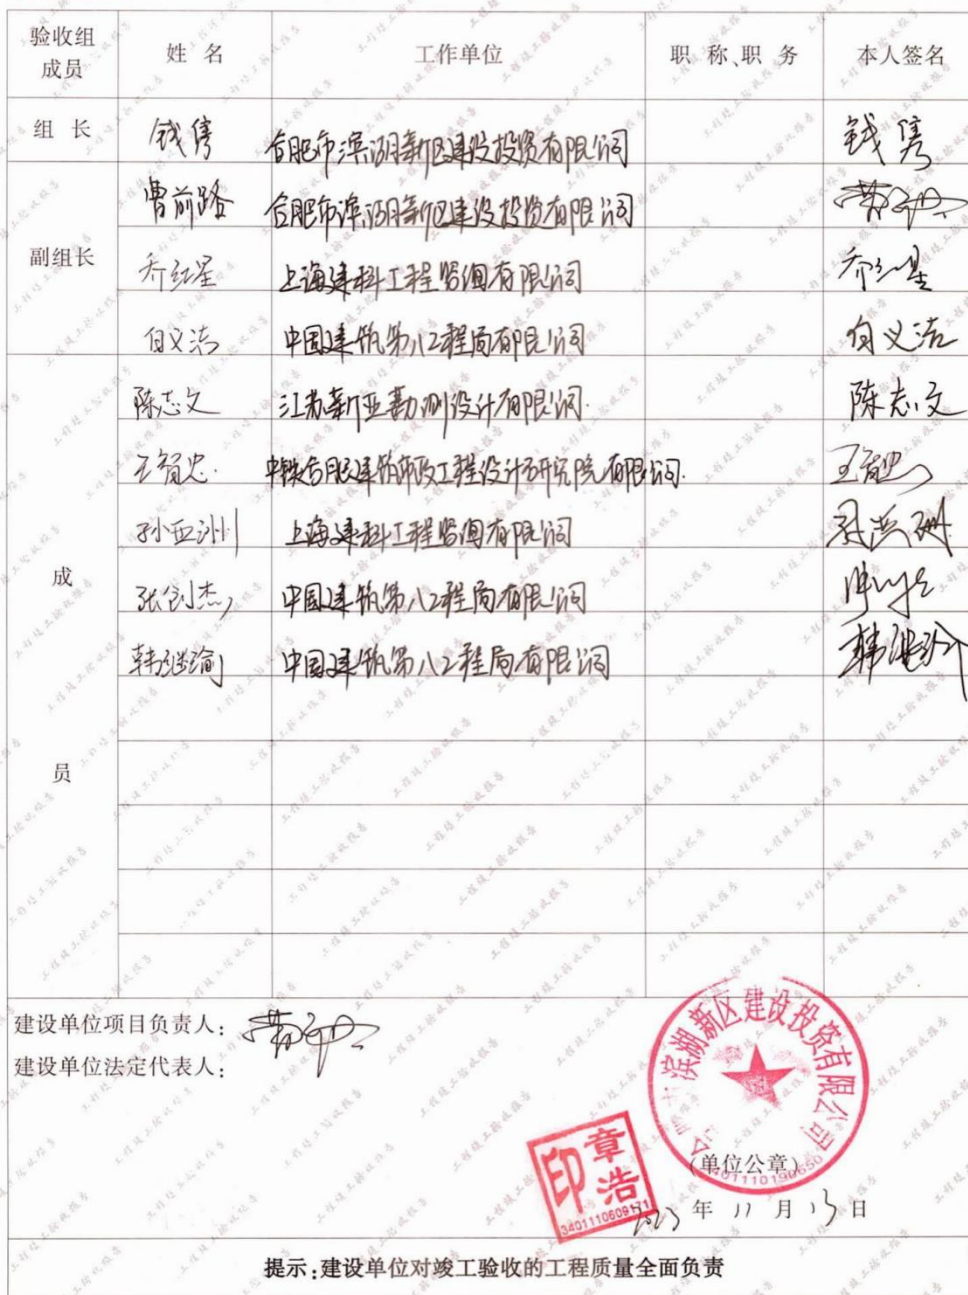 验收组成员 姓 名 工作单位 职 称、职 务 本人签名
组 长 钱隽 合肥市滨湖新区建设投资有限公司 钱隽
副组长
曹前路 合肥市滨湖新区建设投资有限公司
乔红星 上海建科工程咨询有限公司 乔红星
白义洁 中国建筑第八工程局有限公司 白义洁
成员
陈志文 江苏新亚勘测设计有限公司. 陈志文
王智忠. 中铁合肥建筑市政工程设计研究院有限公司. 王智忠
孙亚洲 上海建科工程咨询有限公司
张创杰 中国建筑第八工程局有限公司
韩继瑜 中国建筑第八工程局有限公司 韩继瑜
建设单位项目负责人：
建设单位法定代表人：
滨湖新区建设投资有限公司
(单位公章)
章浩印
3401110609171
2023 年 11 月 13 日
提示:建设单位对竣工验收的工程质量全面负责
工程竣工验收报告